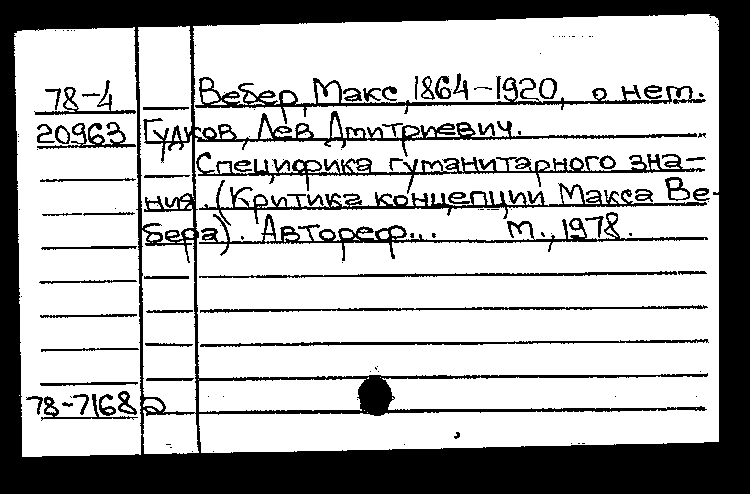 78-4 Вебер, Макс, 1864-1920, о нем.
20963 Гудков, Лев Дмитриевич.
Специфика гуманитарного зна-
ния. (Критика концепции Макса Ве-
бера). Автореф... М., 1978.
78-7168а